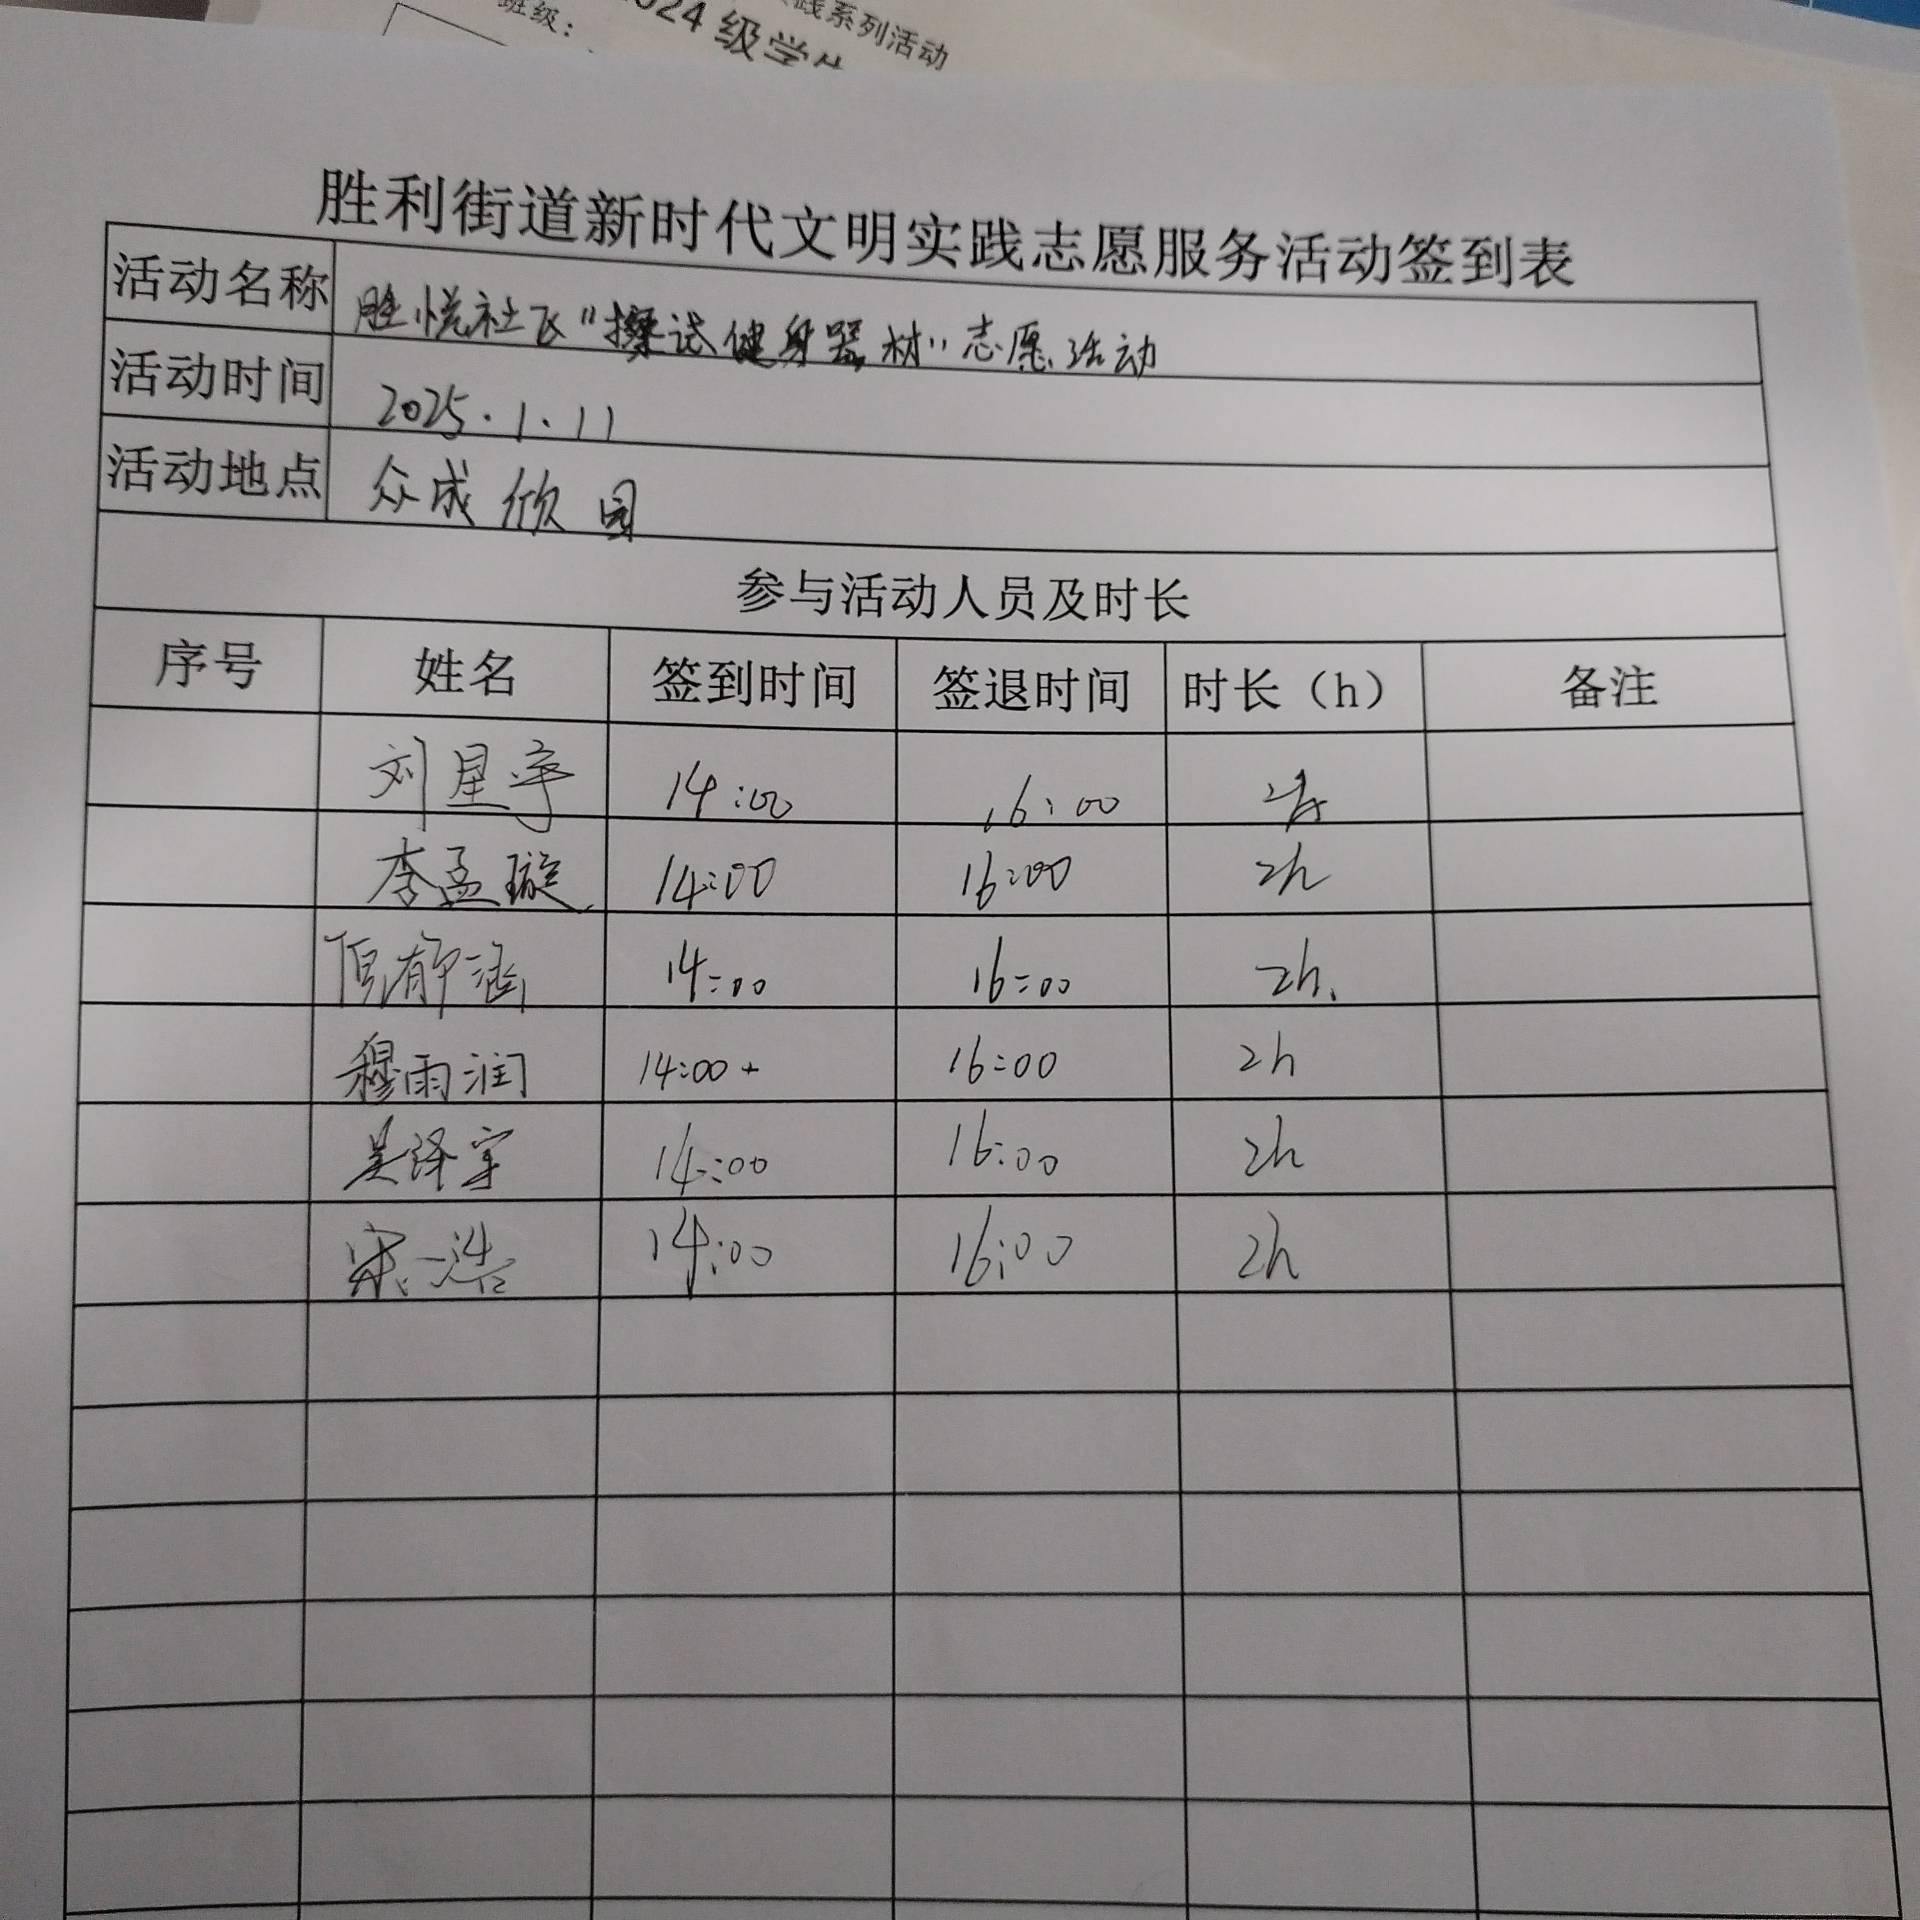 践系列活动
班级：
2024 级学生
胜利街道新时代文明实践志愿服务活动签到表
活动名称 胜悦社区“擦试健身器材”志愿活动
活动时间 2025.1.11
活动地点 众成欣园
参与活动人员及时长
序号 姓名 签到时间 签退时间 时长（h） 备注
刘星宇 14:00 16:00 2h
李孟璇 14:00 16:00 2h
倪静涵 14:00 16:00 2h.
穆雨润 14:00 16:00 2h
吴泽宇 14:00 16:00 2h
宋一浩 14:00 16:00 2h